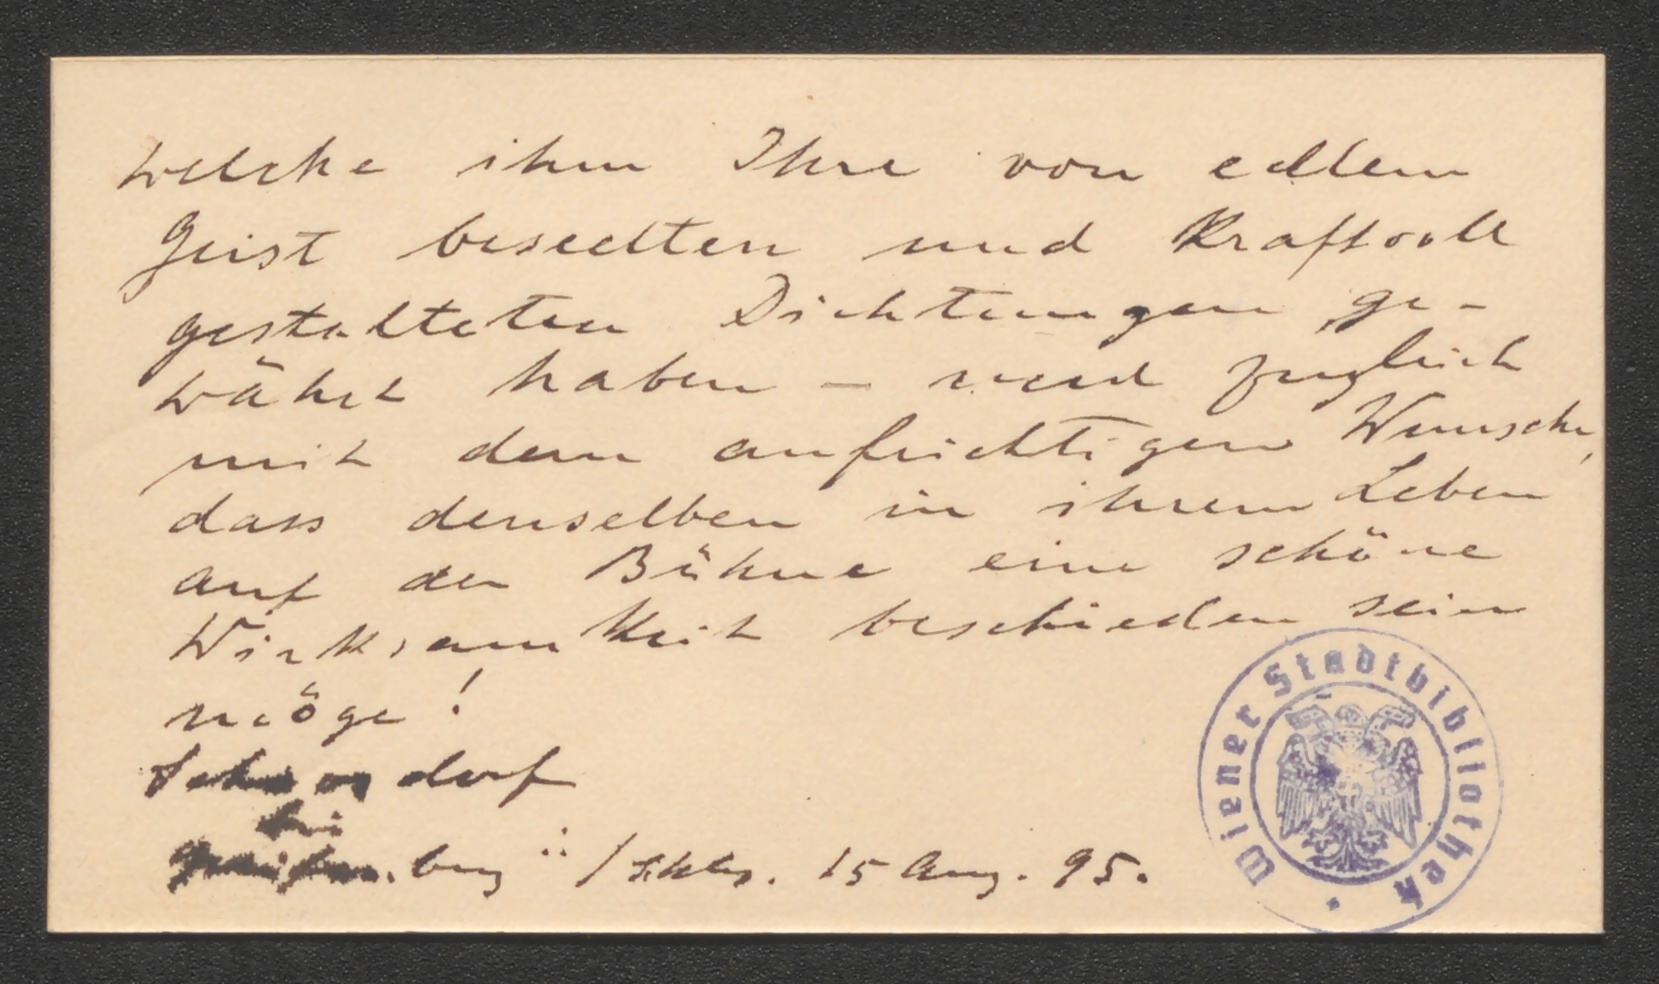 welche ihm Ihre von edlem
Geist beseelten und kraftvoll
gestalteten Dichtungen ge-
währt haben – und zugleich
mit dem aufrichtigen Wunsche,
dass denselben in ihrem Leben
auf der Bühne eine schöne
Wirksamkeit beschieden sein
möge!
dorf
bei
berg 15 Aug. 95.
Wiener Stadtbibliothek